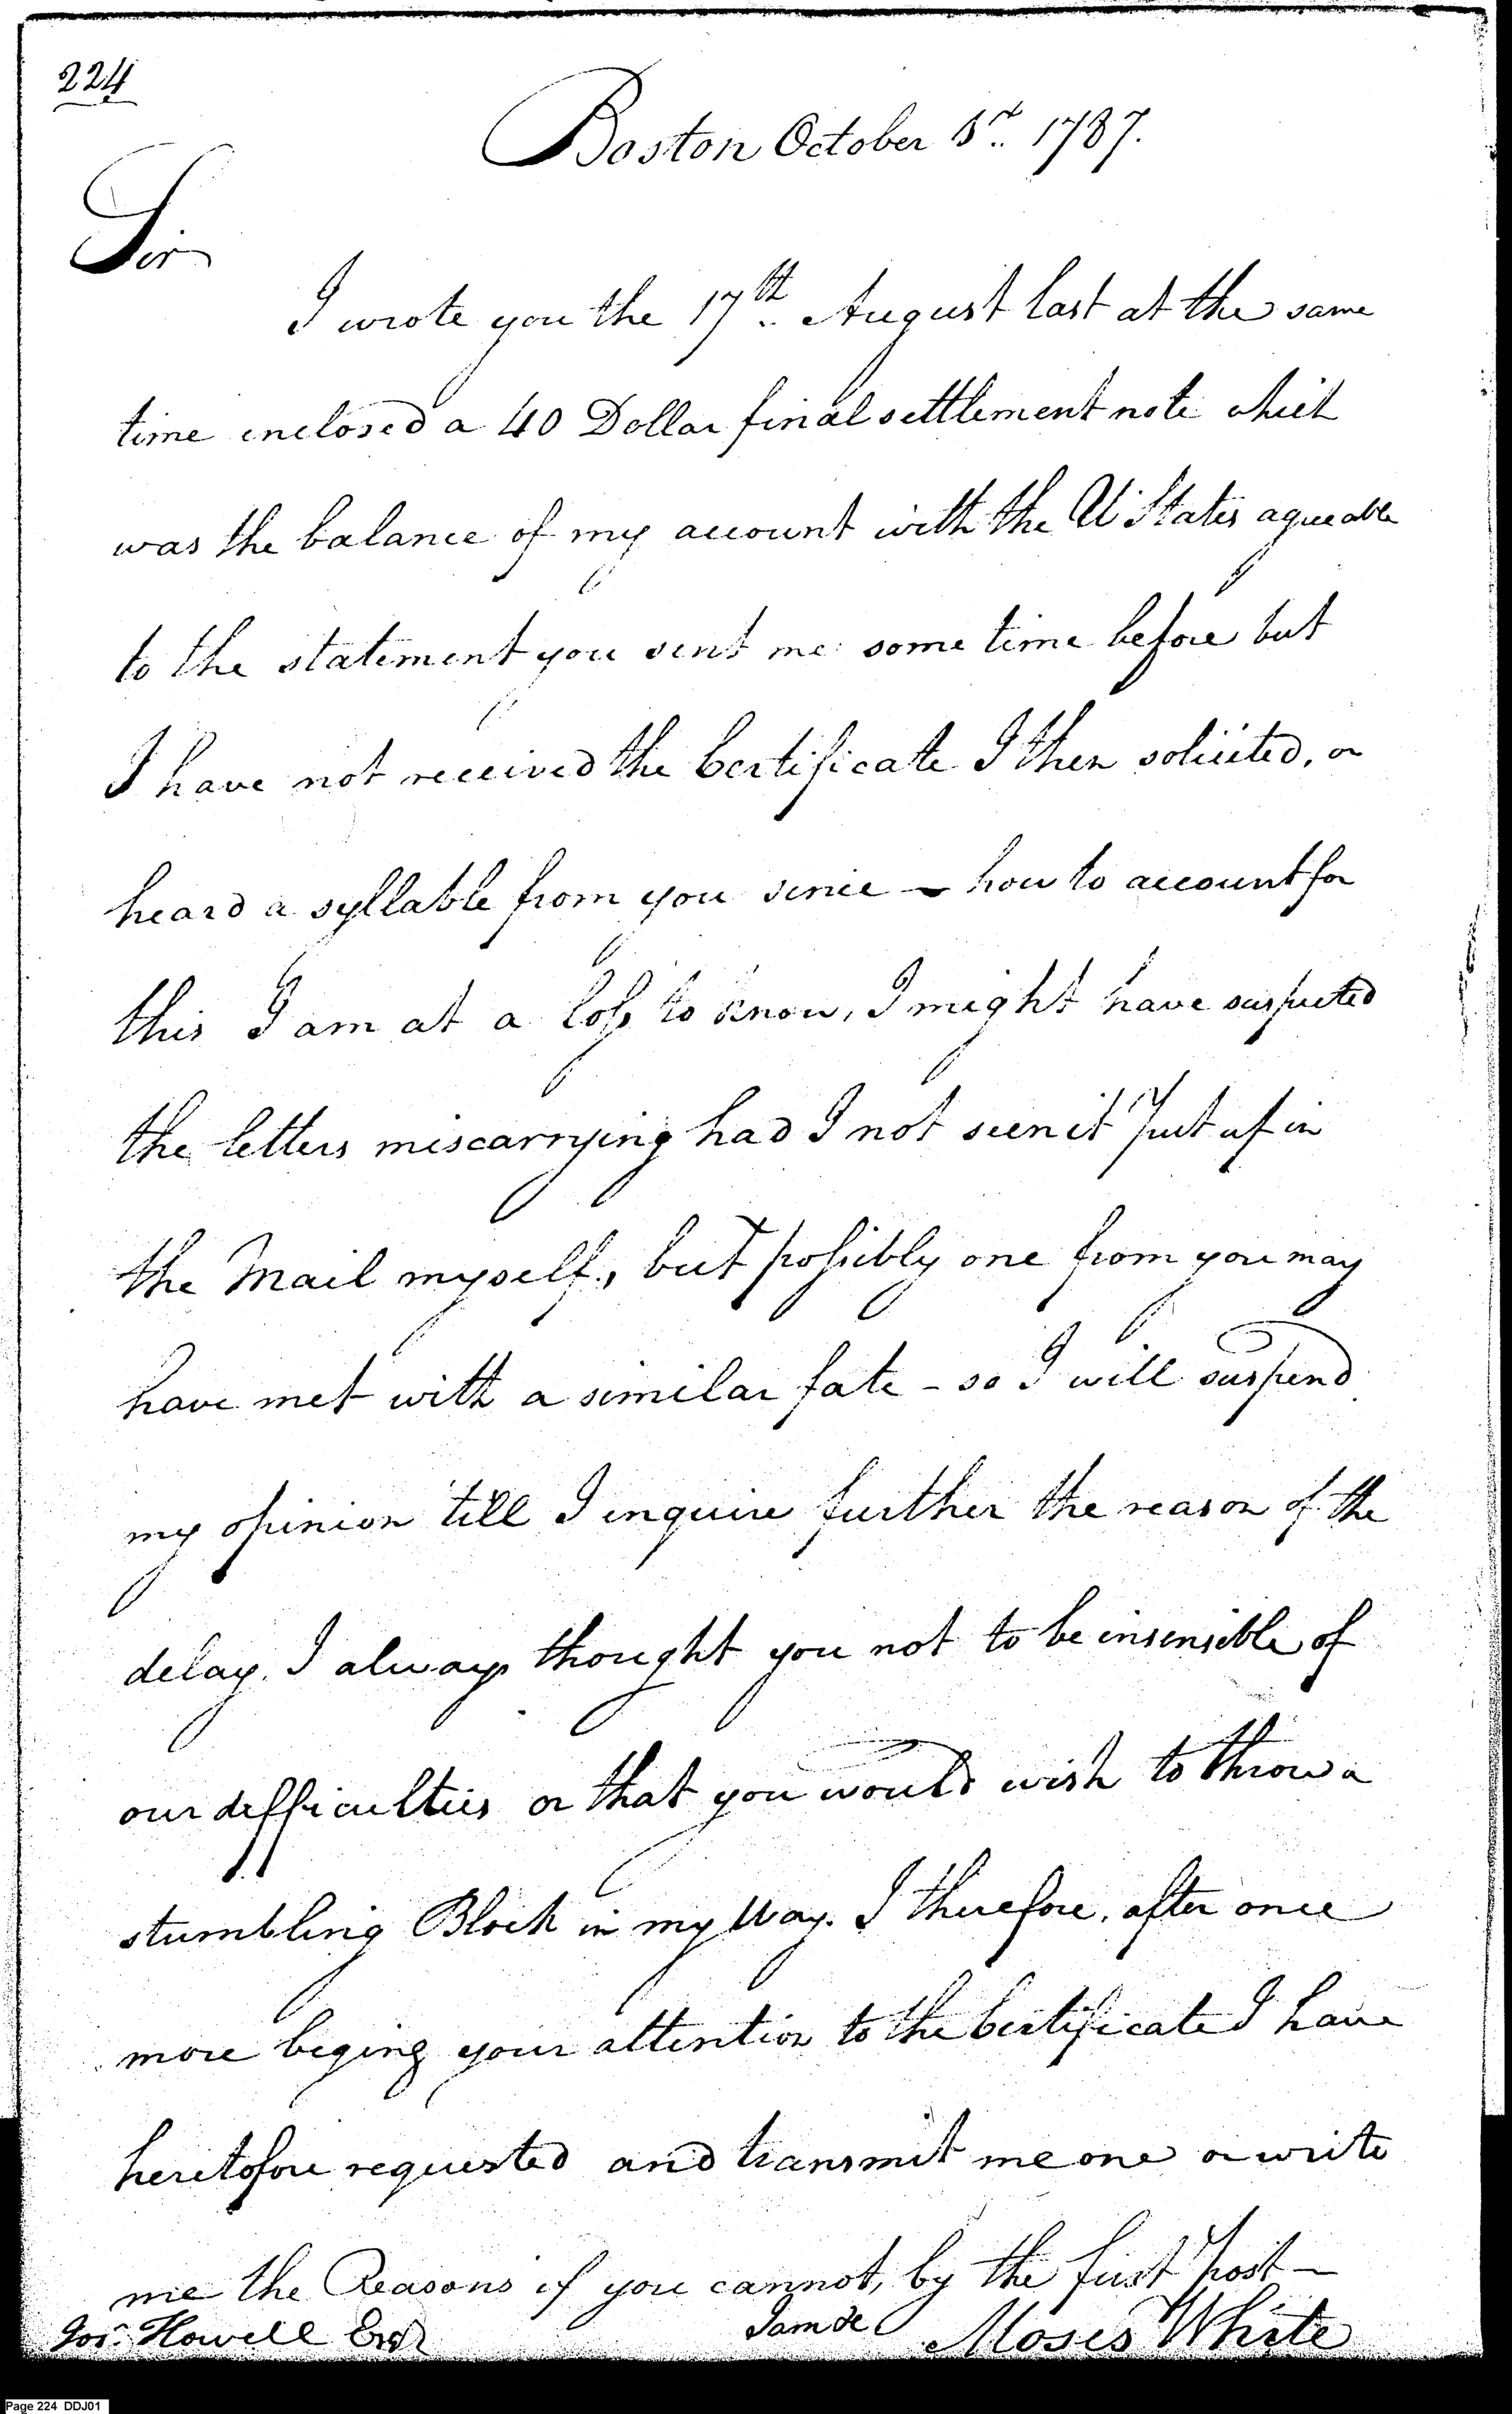 224
Boston October 3rd. 1787.
Sir
I wrote you the 17th. August last at the same
time inclosed a 40 Dollar final settlement note which
was the balance of my account with the U States agreeable
to the statement you sent me some time before but
I have not received the Certificate I then solicited, or
heard a syllable from you since - how to account for
this I am at a loss to know, I might have suspected
the letters miscarrying had I not seen it Put up in
the Mail myself, but possibly one from you may
have met with a similar fate - so I will suspend
my opinion till I inquire further the reason of the
delay. I always thought you not to be insensible of
our difficulties or that you would wish to throw a
stumbling Block in my Way. I therefore, after once
more beging your attention to the Certificate I have
heretofore requested and transmit me one or write
me the Reasons if you cannot, by the first Post -
Jos. Howell Esqr
I am &c
Moses White
Page 224 DDJ01